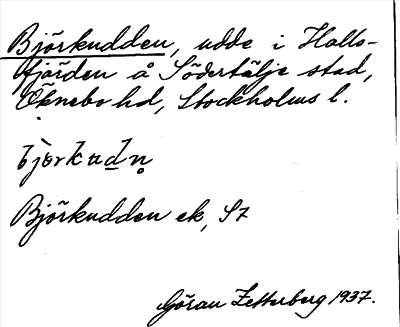 Björkudden, udde i Halls-
fjärden å Södertälje stad,
Öknebo hd, Stockholms l.
Björkudden ek, S7
Göran Zetterberg 1937.